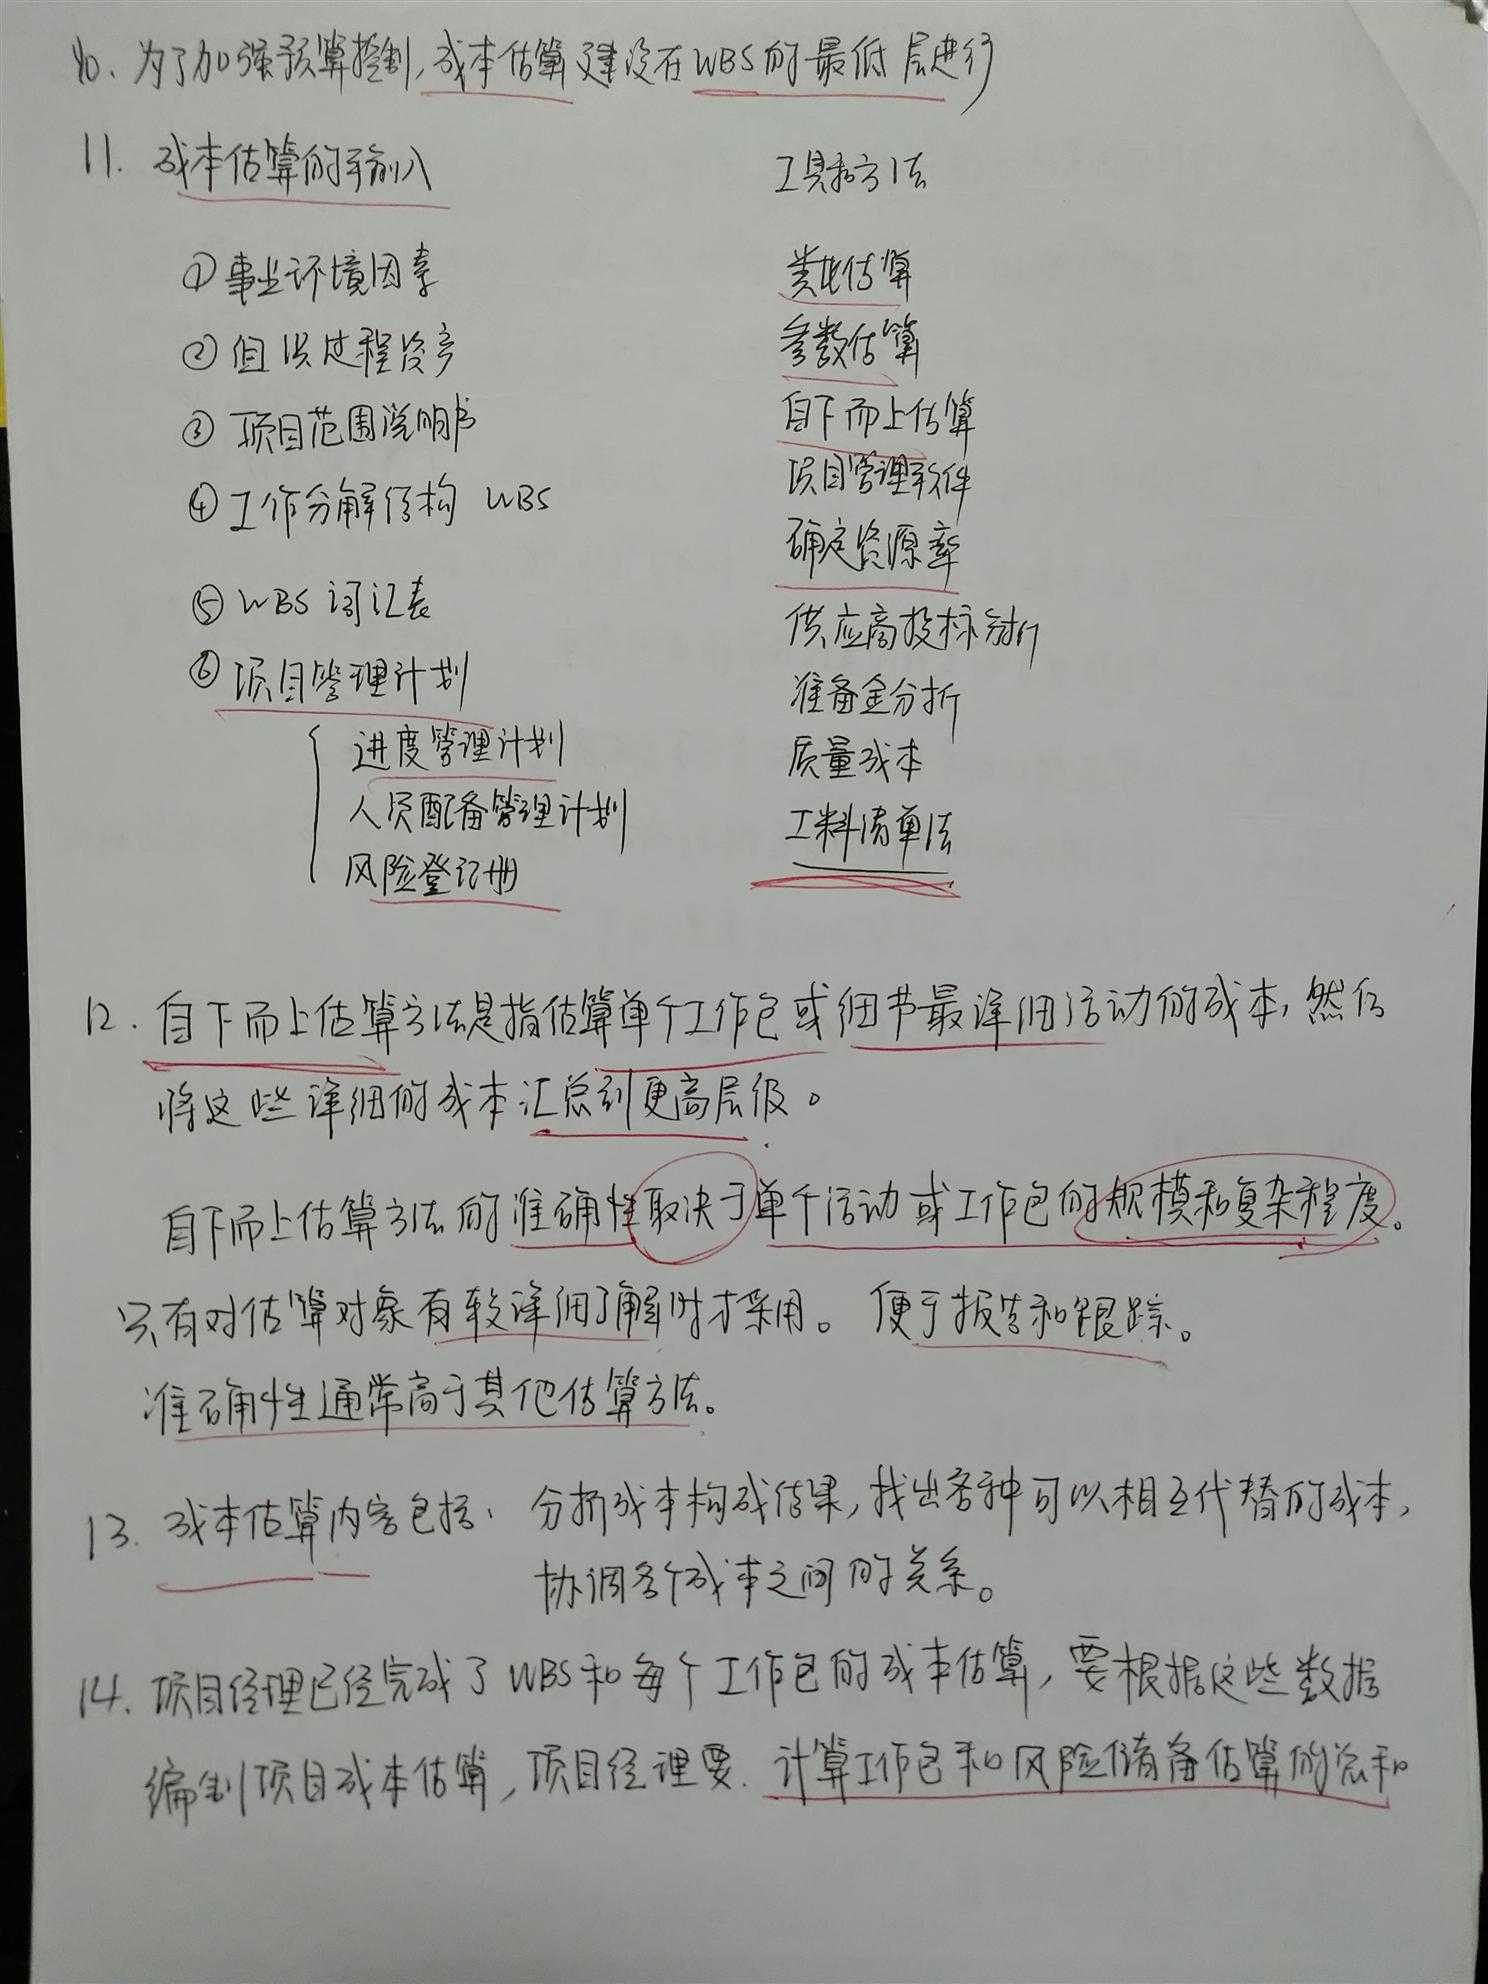 10. 为了加强预算控制,成本估算建议在WBS的最低层进行
11. 成本估算的输入
工具和方法
① 事业环境因素
类比估算
② 组织过程资产
参数估算
③ 项目范围说明书
自下而上估算
④ 工作分解结构 WBS
项目管理软件
确定资源率
⑤ WBS 词汇表
供应商投标分析
⑥ 项目管理计划
准备金分析
进度管理计划
质量成本
人员配备管理计划
工料清单法
风险登记册
12. 自下而上估算方法是指估算单个工作包或细节最详细活动的成本,然后
将这些详细的成本汇总到更高层级。
自下而上估算方法的准确性取决于单个活动或工作包的规模和复杂程度。
只有对估算对象有较详细了解时才采用。 便于报告和跟踪。
准确性通常高于其他估算方法。
13. 成本估算内容包括、 分析成本构成结果,找出各种可以相互代替的成本,
协调各个成本之间的关系。
14. 项目经理已经完成了WBS和每个工作包的成本估算,要根据这些数据
编制项目成本估算,项目经理要. 计算工作包和风险储备估算的总和